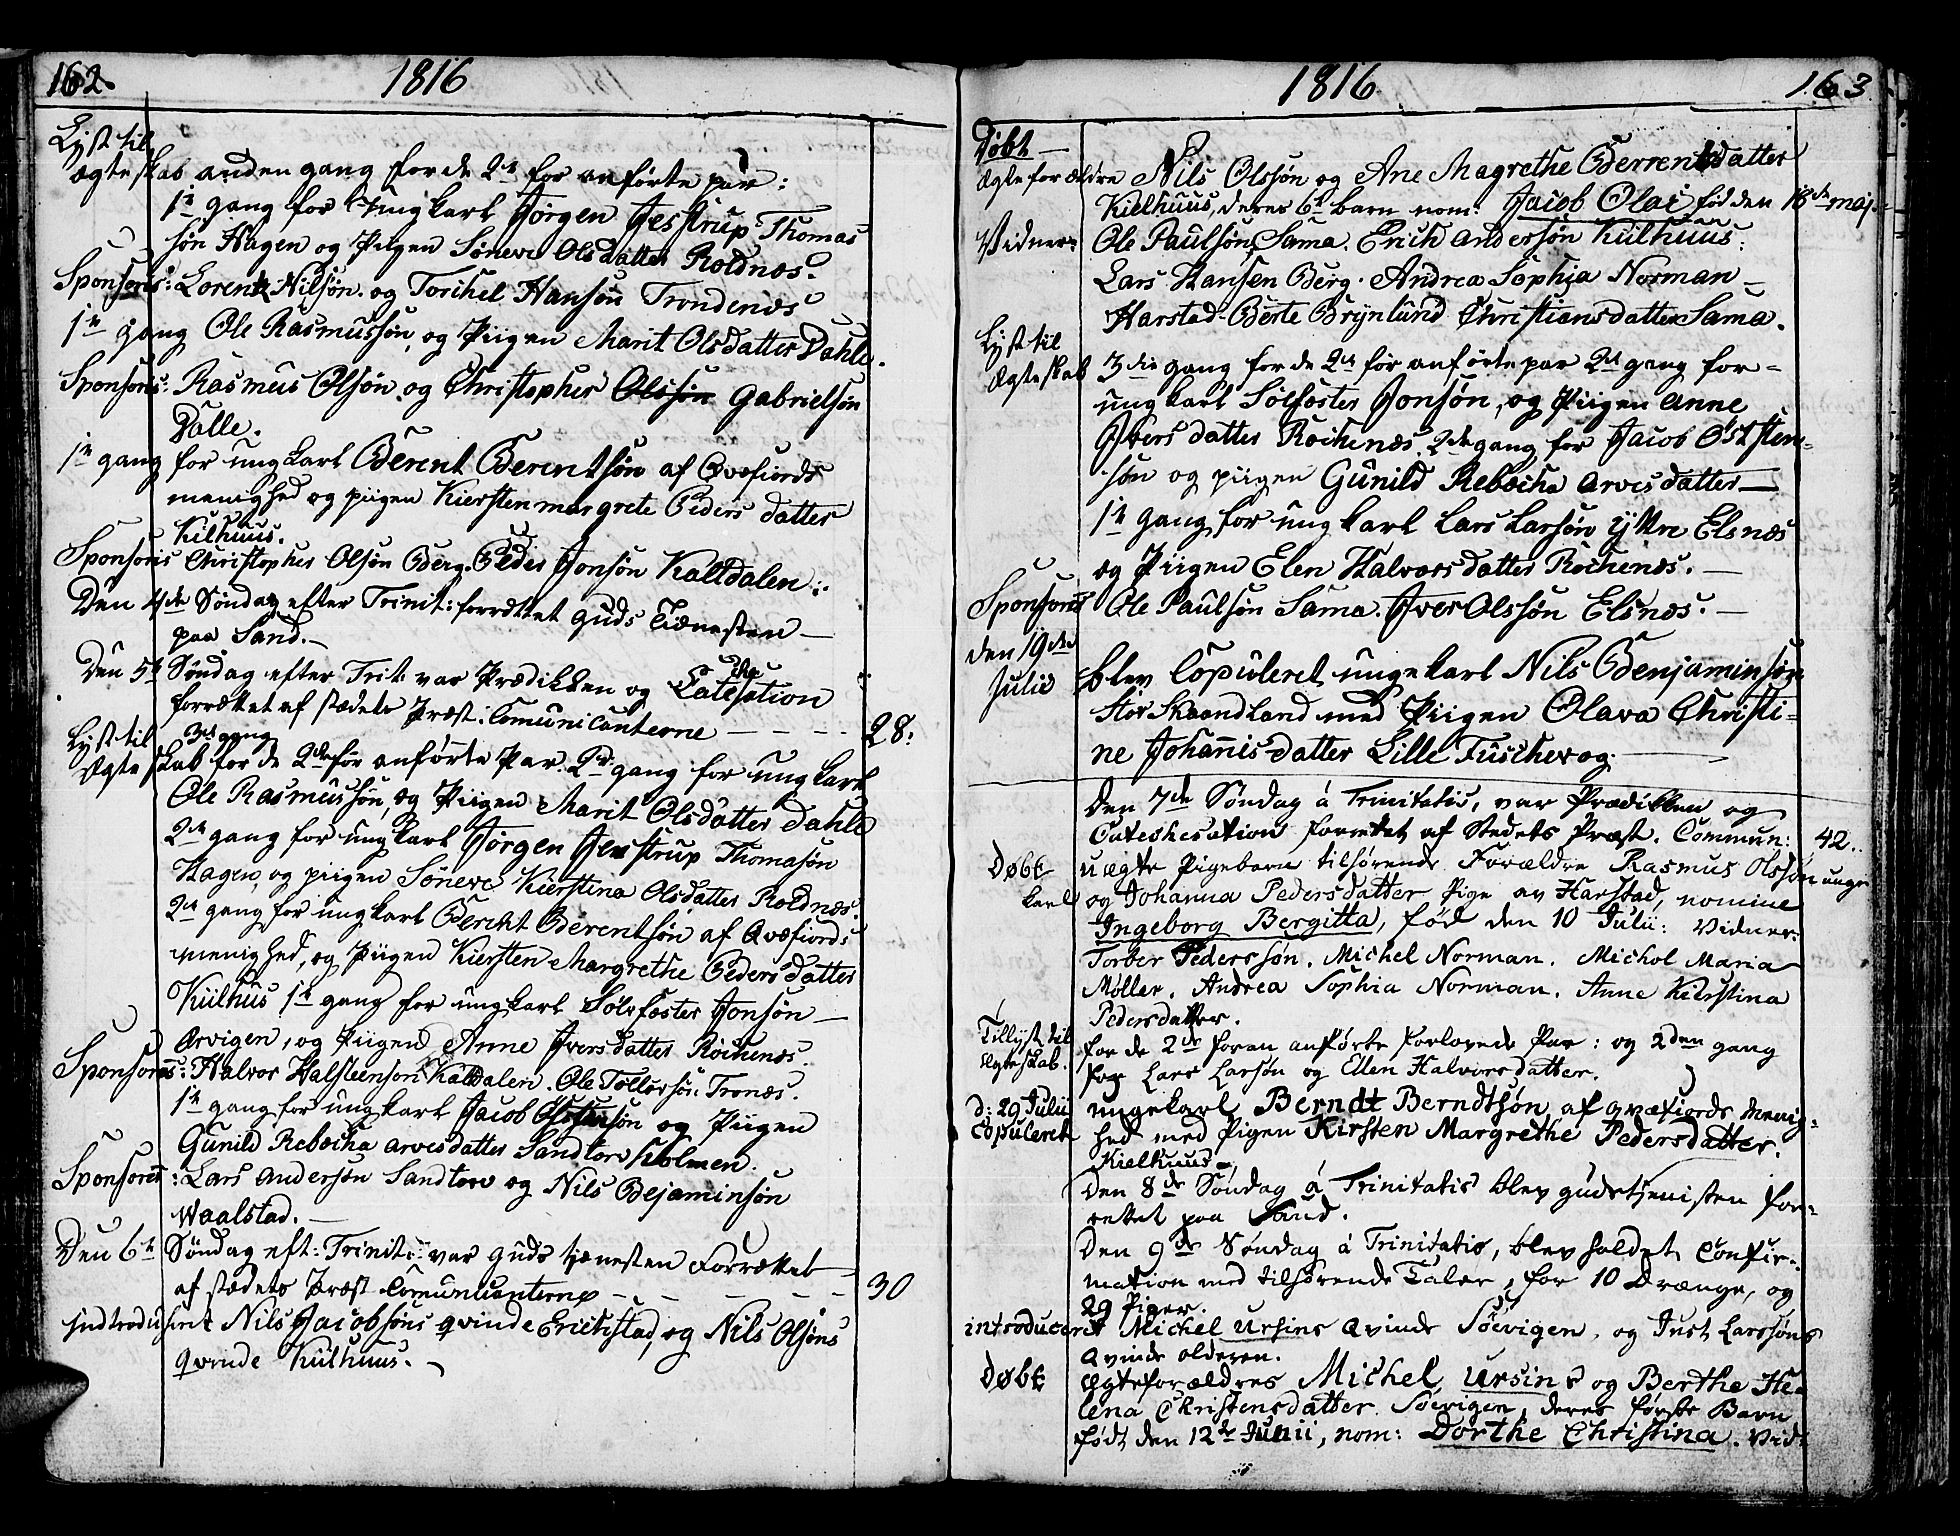 162.
1816
Lyst til
ægteskab anden gang for de 2de for anførte par:
1te gang for Ungkarl Jørgen Jesstrup Thomas
søn Hagen og Piigen Søneve Olsdatter Roldnæs.
Sponsoris: Lorentz Nilsøn. og Torchel Hansøn Trondenæs
1te gang Ole Rasmussøn, og Piigen Marit Olsdatter Dahle.
Sponsoris: Rasmus Olsøn. og Christopher Olssøn Gabrielsøn
Dalle.
1te gang for ungkarl Berent Berentsøn af Qvæfiords
menighed og piigen Kiersten margrete Peders datter
Kilhuus.
Sponsoris Christopher Olsøn Berg. Peder Jonsøn Kaltdalen:.
Den 4de Søndag efter Trinit: forrættet Guds Tiænesten —
paa Sand. —
Den 5te Søndag efter Trit: var Prædikken og Catechesation
forrættet af stædets Præst: Comunicanterne - - - - 28:
Lyst til 3de gang
Ægteskab for de 2de før anførte Par. 2de gang for ungkarl
Ole Rasmussøn, og Piigen Marit Olsdatter Dahle
2de gang for ungkarl Jørgen Jesstrup Thomasøn
Hagen, og piigen Søneve Kierstina Olsdatter Roldnæs.
2de gang for ungkarl Berent Berentsøn af Qvæfiords
menighed, og Piigen Kiersten Margrethe Peders datter
Kiilhus 1te gang for ungkarl Sølfæster Jonsøn —
Arvigen, og Piigen Anne Iversdatter Rochenæs.
Sponsores: Halvor Halsteenson Kaltdalen. Ole Tollorsøn Tronæs.
1te gang for ungkarl Jacob søn og Piigen
Gunild Rebecha Arvesdatter Sandtorv holmen.
Sponsores: Lars Andersøn Sandtorv og Nils Bejaminsøn
Waalstad. —
Den 6te Søndag eft: Trinit: var Guds tienesten Forrættet —
af stædets Præst Comunicanterne - - - - - 30
Indtroduseret Nils Jacobsøns qvinde Erichstad, og Nils Olsøns
Qvinde Kiilhuus. —
1816
163.
Døbt —
Ægteforældre Nils Olssøn og Ane Magrethe Berrentsdatter
Kielhuus, deres 6te barn nom: Jacob Olai fød den 18de maj.
Vidner: Ole Paulsøn, Sama. Erich Andersøn Kiilhuus:
Lars Hansen Berg. Andrea Sophia Norman —
Harstad. Berte Brynlund Christiansdatter Sama.
Lyst til
Ægteskab 3die gang for de 2de før anførte par 2de gang for —
ungkarl Sølfæster Jonsøn, og Piigen Anne
Ivers datter Rochenæs. 2de gang for Jacob Øststen-
søn og piigen Gunild Rebecha Arvesdatter —
1te gang for ungkarl Lars Larsøn ijttre Elsnæs
og Piigen Elen Halvorsdatter Rochenæs. —
Sponsores Ole Paulsøn Sama. Iver Olssøn Elsnæs. —
den 19de
Julii blev Copuleret ungekarl Nils Benjaminsøn
Stor Skaandland med Piigen Olava Christi-
ne Johanis datter Lille Fuscherog. —
Den 7de Søndag á Trinitatis, var Prædikken og
Cateshesation forrettet af Stedets Præst. Commun: 42..
Døbt uægte Pigebarn tilhørende Forældre Rasmus Olssøn unge
karl og Johanna Pedersdatter Pige av Harstad, nomine
Ingeborg Bergitta, fød den 10 Julii: Vidner:
Torber Pederssøn. Michel Norman. Michol Maria
Møller. Andrea Sophia Norman. Anne Kierstina
Pedersdatter.
Tillyst til
Ægteskab. for de 2de foran anførte forlovede Par: og 2den gang
for Lars Larsøn og Ellen Halvorsdatter.
d: 29 Julii
Copuleret ungekarl Berndt Berndtsøn af Qvæfiords Menig-
hed med Pigen Kirsten Margrethe Pedersdatter.
Kielhuus —
Den 8de Søndag á Trinitatis blev gudstjenisten for-
rettet paa Sand.
Den 9de Søndag á Trinitatis, blev holdet Confir-
mation med tilhørende Taler, for 10 Drænge, og
29 Piger.
introduceret Michel Ursins Qvinde Søevigen, og Just Larssøns
Qvinde Alderen.
Døbt Ægteforældres Michel Ursins og Berthe He-
lena Christensdatter. Søevigen, deres første Barn
født den 12te Junii, nom: Dorthe Christina. Vid-